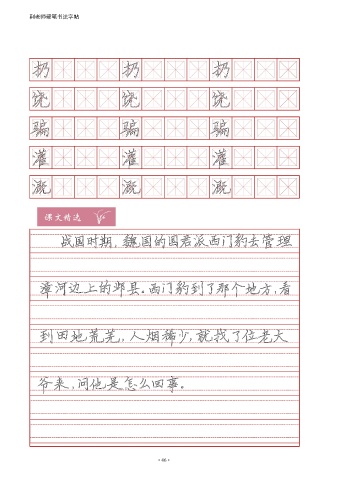 田老师硬笔书法字帖
扔 扔 扔
饶 饶 饶
骗 骗 骗
灌 灌 灌
溉 溉 溉
课文精选
战国时期,魏国的国君派西门豹去管理
漳河边上的邺县。西门豹到了那个地方,看
到田地荒芜,人烟稀少,就找了位老大
爷来,问他是怎么回事。